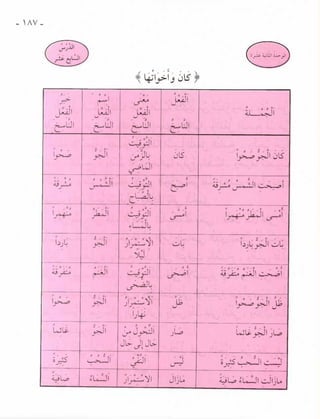 - ١٨٧ -
الوحدة الثانية عشرة
الدَّرْسُ
السَّابِعَ عَشَرَ
﴿ كَانَ وَأَخَوَاتُهَا ﴾
الْجُمْلَةُ الْفِعْلُ النَّاسِخُ مَعْنَى الْفِعْلِ النَّاسِخِ اسْمُ الْفِعْلِ النَّاسِخِ خَبَرُ الْفِعْلِ النَّاسِخِ
كَانَ الْجَوُّ صَحْوًا كَانَ التَّوْقِيتُ بِالزَّمَنِ الْمَاضِي الْجَوُّ صَحْوًا
أَصْبَحَتِ الشَّمْسُ مُشْرِقَةً أَصْبَحَ التَّوْقِيتُ بِالصَّبَاحِ الشَّمْسُ مُشْرِقَةً
أَمْسَى التَّوْقِيتُ بِالْمَسَاءِ
بَاتَ الْجَوُّ بَارِدًا بَاتَ الِاسْتِمْرَارُ لَيْلًا الْجَوُّ بَارِدًا
أَضْحَتِ التَّوْقِيتُ بِالضُّحَى
ظَلَّ الْجَوُّ صَحْوًا ظَلَّ الِاسْتِمْرَارُ نَهَارًا الْجَوُّ صَحْوًا
صَارَ الْجَوُّ صَارَ التَّحَوُّلُ مِنْ حَالٍ إِلَى حَالٍ الْجَوُّ
لَيْسَتِ السُّحُبُ كَثِيرَةً لَيْسَ النَّفْيُ السُّحُبُ كَثِيرَةً
مَازَالَتِ السَّمَاءُ صَافِيَةً مَازَالَ الِاسْتِمْرَارُ السَّمَاءُ صَافِيَةً